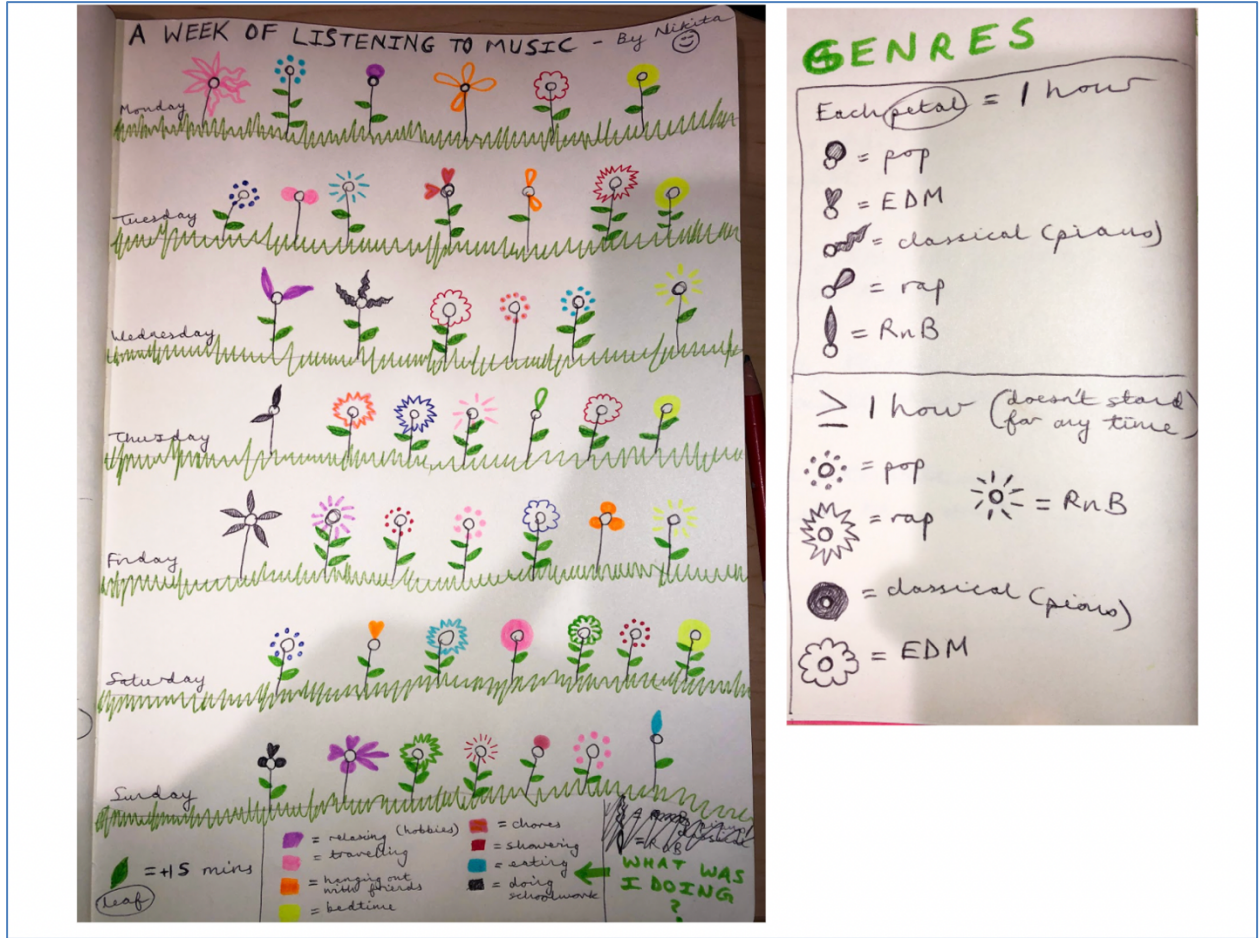 A WEEK OF LISTENING TO MUSIC - By Nikita
Monday
Tuesday
Wednesday
Thursday
Friday
Saturday
Sunday
= +15 mins
leaf
= relaxing (hobbies)
= travelling
= hanging out
with friends
= bedtime
= chores
= showering
= eating
= doing
schoolwork
WHAT WAS
I DOING
?
GENRES
Each petal = 1 hour
= pop
= EDM
= classical (piano)
= rap
= RnB
≥ 1 hour (doesn't stand
for any time)
= pop
= RnB
= rap
= classical (piano)
= EDM